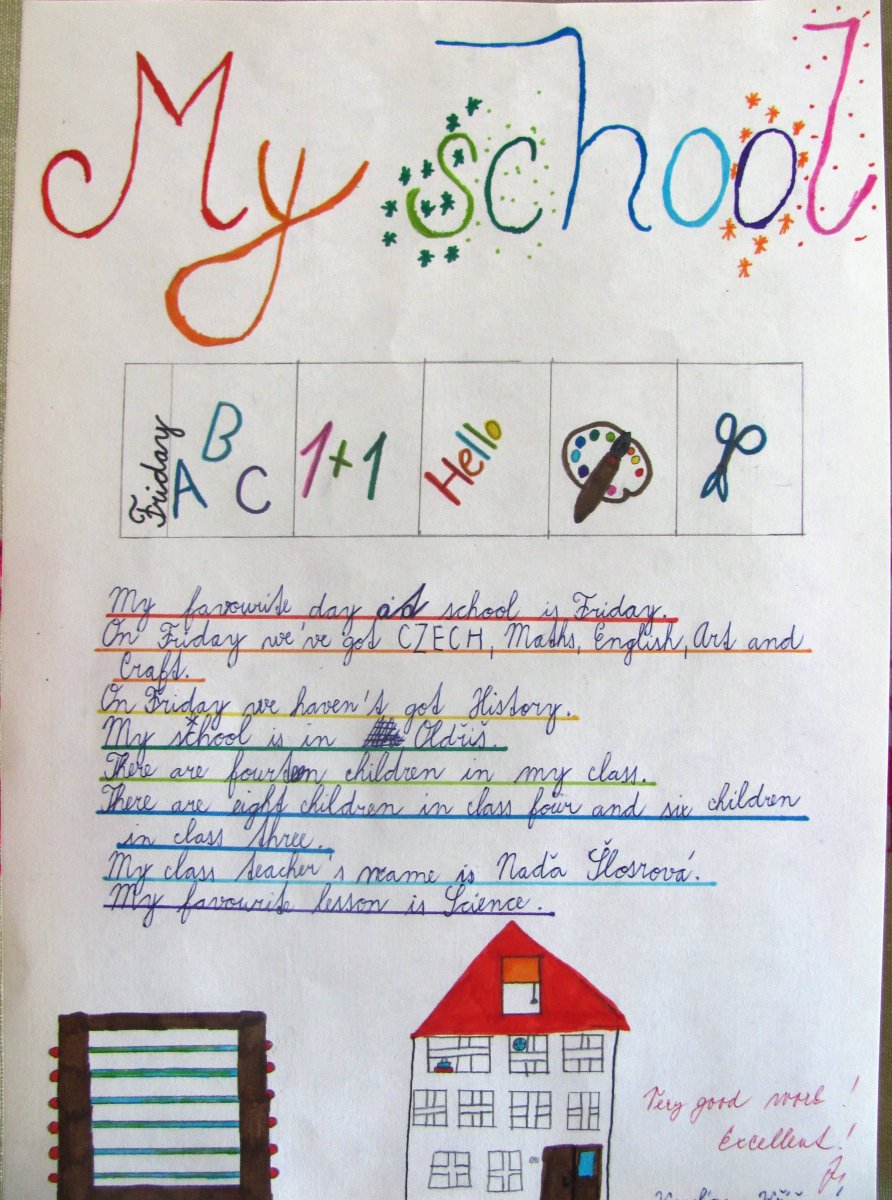 My school
Friday A B C 1+1 Hello
My favourite day at school is Friday.
On Friday we've got CZECH, Maths, English, Art and
Craft.
On Friday we haven't got History.
My school is in Oldřiš.
There are fourteen children in my class.
There are eight children in class four and six children
in class three.
My class teacher's name is Naďa Šlosrová.
My favourite lesson is Science.
Very good work!
Excellent!